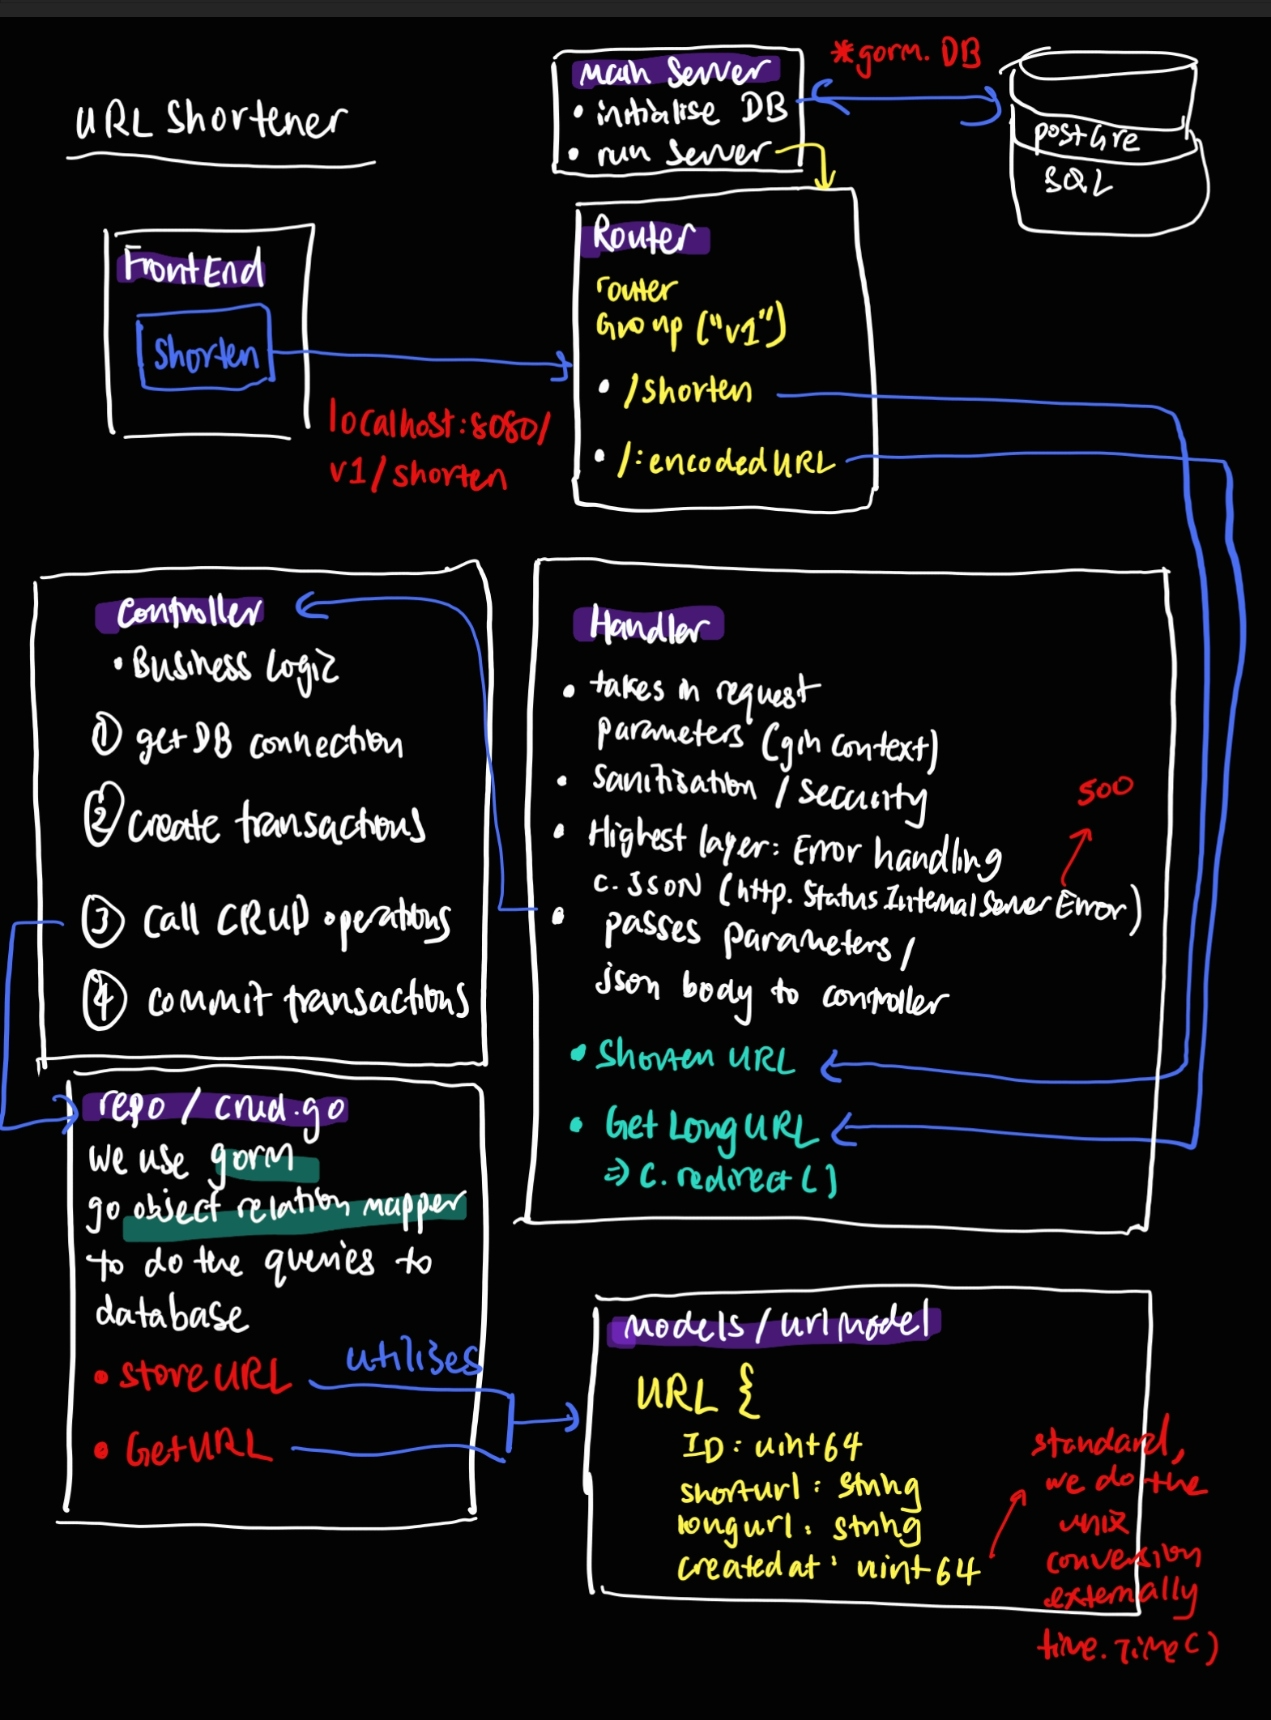 URL Shortener
Main Server
• initialise DB
• run server
*gorm.DB
postgre
SQL
FrontEnd
Shorten
localhost:8080/
v1/shorten
Router
router
Group ("v1")
• /shorten
• /:encodedURL
Controller
• Business Logic
① get DB connection
② create transactions
③ Call CRUD operations
④ commit transactions
Handler
• takes in request
parameters (gin context)
• Sanitisation / Security
• Highest layer: Error handling
c.JSON (http.StatusInternalServerError)
500
• passes parameters /
json body to controller
• Shorten URL
• Get Long URL
=> C.redirect()
repo / crud.go
we use gorm
go object relation mapper
to do the queries to
database
• storeURL
• GetURL
utilises
models / urlmodel
URL {
ID : uint64
shorturl : string
longurl : string
createdat : uint64
standard,
we do the
unix
conversion
externally
time.Time()